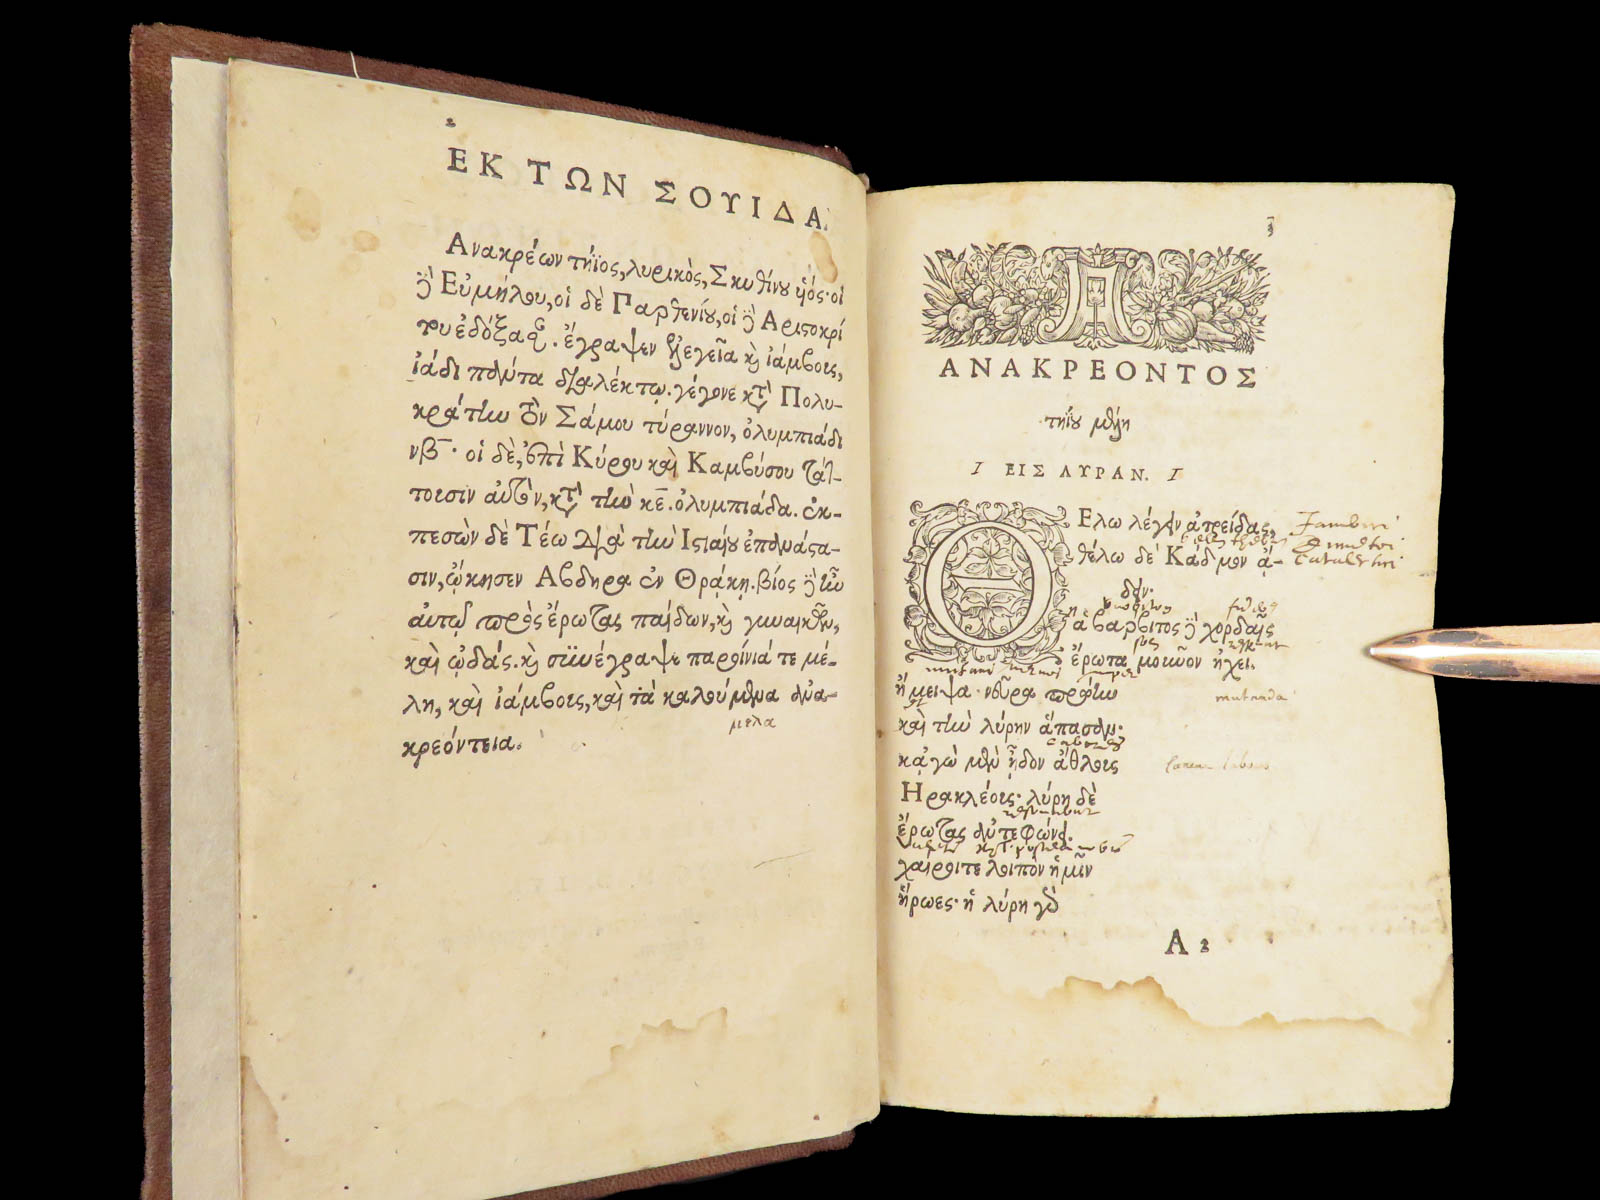 2
ΕΚ ΤΩΝ ΣΟΥΙΔΑ.
Ἀνακρέων τήϊος, λυρικὸς, Σκυθίνου υἱός· οἱ
δὲ Εὐμήλου, οἱ δὲ Παρθενίου, οἱ δὲ Ἀριστοκρί
του ἐδόξασαν. ἔγραψεν ἐλεγεῖα καὶ ἰάμβους,
ἰάδι πάντα διαλέκτῳ. γέγονε κατὰ Πολυ-
κράτην τὸν Σάμου τύραννον, ὀλυμπιάδι
νβ· οἱ δὲ, ἐπὶ Κύρου καὶ Καμβύσου τάτ-
τουσιν αὐτὸν, κατὰ τὴν κε. ὀλυμπιάδα. ἐκ-
πεσὼν δὲ Τέω διὰ τὴν Ἱστιαίου ἐπανάστα-
σιν, ᾤκησεν Ἄβδηρα ἐν Θράκῃ. βίος δὲ ἦν
αὐτῷ πρὸς ἔρωτας παίδων, καὶ γυναικῶν,
καὶ ᾠδάς. καὶ συνέγραψε παροίνιά τε μέ-
λη, καὶ ἰάμβους, καὶ τὰ καλούμενα ἀνα-
κρεόντεια.
μελα
3
ΑΝΑΚΡΕΟΝΤΟΣ
τηΐου μέλη
1 ΕΙΣ ΛΥΡΑΝ. 1
ΘΕλω λέγειν ἀτρείδας,
θέλω δὲ Κάδμον ᾄ-
δειν·
ἁ βάρβιτος δὲ χορδαῖς
ἔρωτα μοῦνον ἠχεῖ.
ἤμειψα νεῦρα πρώην
mutanda
καὶ τὴν λύρην ἅπασαν·
κᾀγὼ μὲν ᾖδον ἄθλους
Ἡρακλέους· λύρη δὲ
ἔρωτας ἀντεφώνει.
χαίροιτε λοιπὸν ἡμῖν
ἥρωες· ἡ λύρη γὰρ
A 2